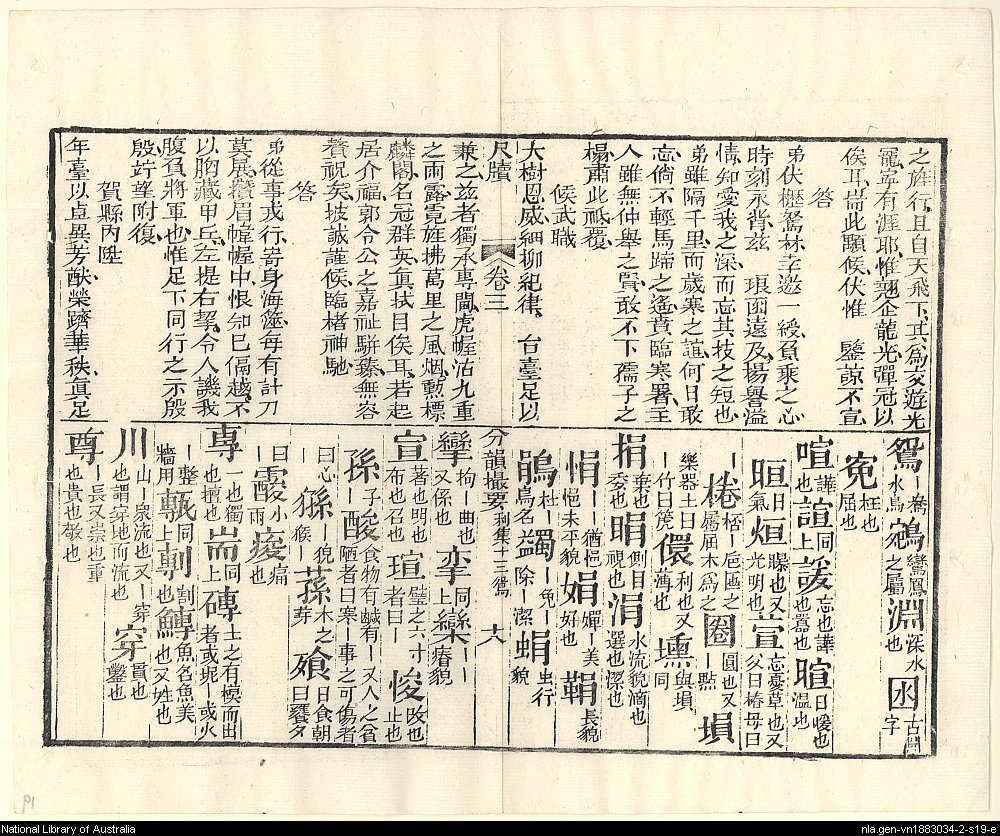 之旌行且自天飛下其爲交遊光
寵寧有涯耶惟翹企龍光彈冠以
俟耳耑此順候伏惟　鑒諒不宣
答
弟伏櫪駑林幸邀一綬負乘之心
時刻永背兹　瑯函遠及揚譽溢
情知愛我之深而忘其技之短也
弟雖隔千里而歲寒之誼何日敢
忘倘不輕馬蹄之遙賁臨寒署主
人雖無仲舉之賢敢不下孺子之
榻肅此祗覆
候武職
大樹恩威細柳紀律　台臺足以
尺牘　卷三
兼之兹者獨承專閫虎幄沽九重
之雨露霓旌拂萬里之風烟勳標
麟閣名冠群英眞拭目俟耳若起
居介福郭令公之嘉祉駢臻無容
贅祝矣坡誠謹候臨楮神馳
答
弟從事戎行寄身海澨每有計刀
莫展攢眉幃幄中恨知已偏越不
以胸藏甲兵左提右挈令人譏我
腹負將軍也惟足下同行之示殷
殷竚望附復
賀縣丙陞
年臺以卓異芳猷榮躋華秩眞足
鴛｜鴦水鳥鵷鸞鳳之屬淵深水也囦古淵字
寃枉也屈也
喧譁也諠同上諼忘也譁也暄日暖也溫也
晅日氣烜光明也又曝也萱忘憂草也又父曰椿母曰
｜棬桮｜卮匜之屬屈木爲之圈圓也又｜㸃塤
樂器土曰｜竹曰箎儇利也又薄也壎與塤同
捐棄也㱙也睊側目視也涓水流貌滴也選也潔也
悁｜猶悒悒未平貌娟嬋｜美好也鞙長貌
鵑杜｜鳥名蠲除｜免｜潔蜎虫行貌
分韻撮要　利集十三鴛　十八
攣拘｜曲也又係也孿同上欒｜｜瘠貌
宣著也明也布也召也瑄璧之六寸者曰｜悛改也止也
孫子｜酸食物有鹹有｜又人之貧陋者曰寒｜事之可傷者
曰心｜猻猴｜蓀木之｜芽飱日食朝曰饔夕
曰｜霰小雨痠痛也
專一也獨也擅也耑同上磚土之有模而出者或坭｜或火
｜整牆用甎同上剸割也鱄魚名魚美也又姓也
川山｜泉流也又｜也謂穿地而流也穿｜貫也鑿也
尊｜長又崇也重也貴也敬也
National Library of Australia
nla.gen-vn1883034-2-s19-e